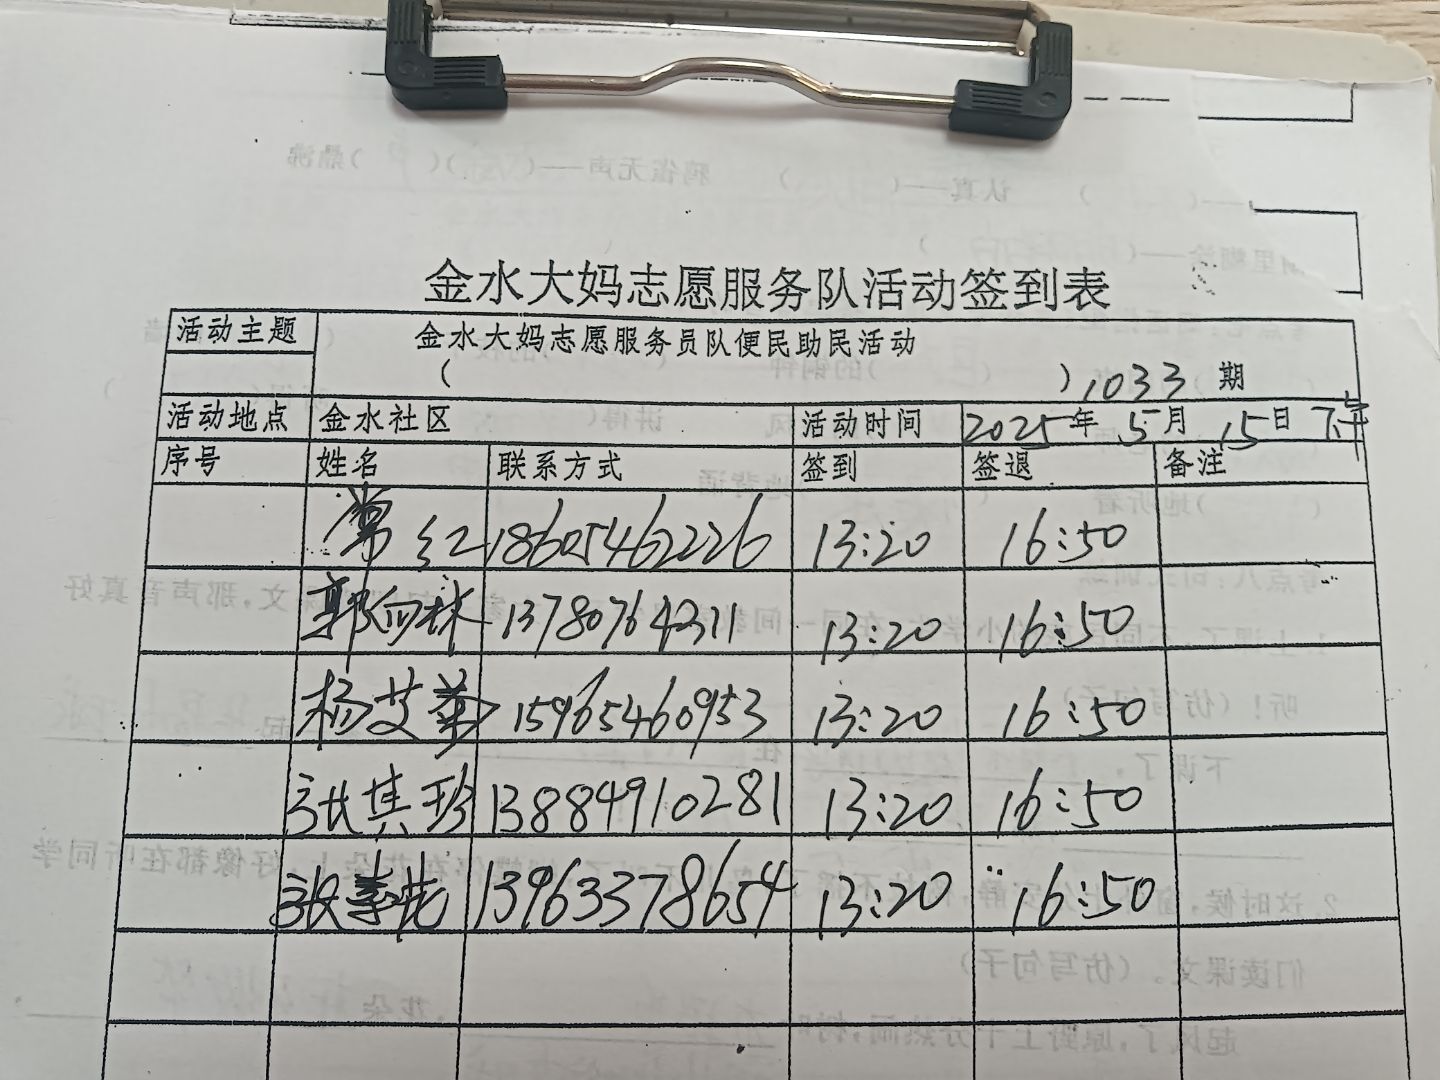 金水大妈志愿服务队活动签到表
活动主题 金水大妈志愿服务员队便民助民活动
( ) 1033 期
活动地点 金水社区 活动时间 2025年 5月 15日 下午
序号 姓名 联系方式 签到 签退 备注
常红 18605462226 13:20 16:50
郭向林 13780764211 13:20 16:50
杨艾英 15965460953 13:20 16:50
张其珍 13884910281 13:20 16:50
张 13963378654 13:20 16:50